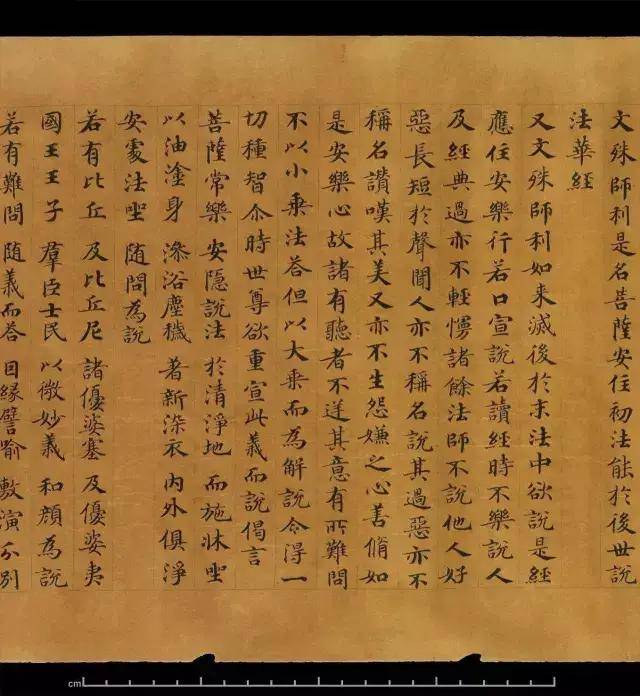 文殊師利是名菩薩安住初法能於後世說
法華經
又文殊師利如来滅後於末法中欲說是經
應住安樂行若口宣說若讀經時不樂說人
及經典過亦不輕慢諸餘法師不說他人好
惡長短於聲聞人亦不稱名說其過惡亦不
稱名讚嘆其美又亦不生怨嫌之心善脩如
是安樂心故諸有聽者不逆其意有所難問
不以小乘法荅但以大乘而為解說令得一
切種智尒時世尊欲重宣此義而說偈言
菩薩常樂 安隱說法 於清淨地 而施牀座
以油塗身 澡浴塵穢 著新染衣 內外俱淨
安處法座 随問為說
若有比丘 及比丘尼 諸優婆塞 及優婆夷
國王王子 羣臣士民 以微妙義 和顏為說
若有難問 随義而荅 因緣譬喻 敷演分別
cm